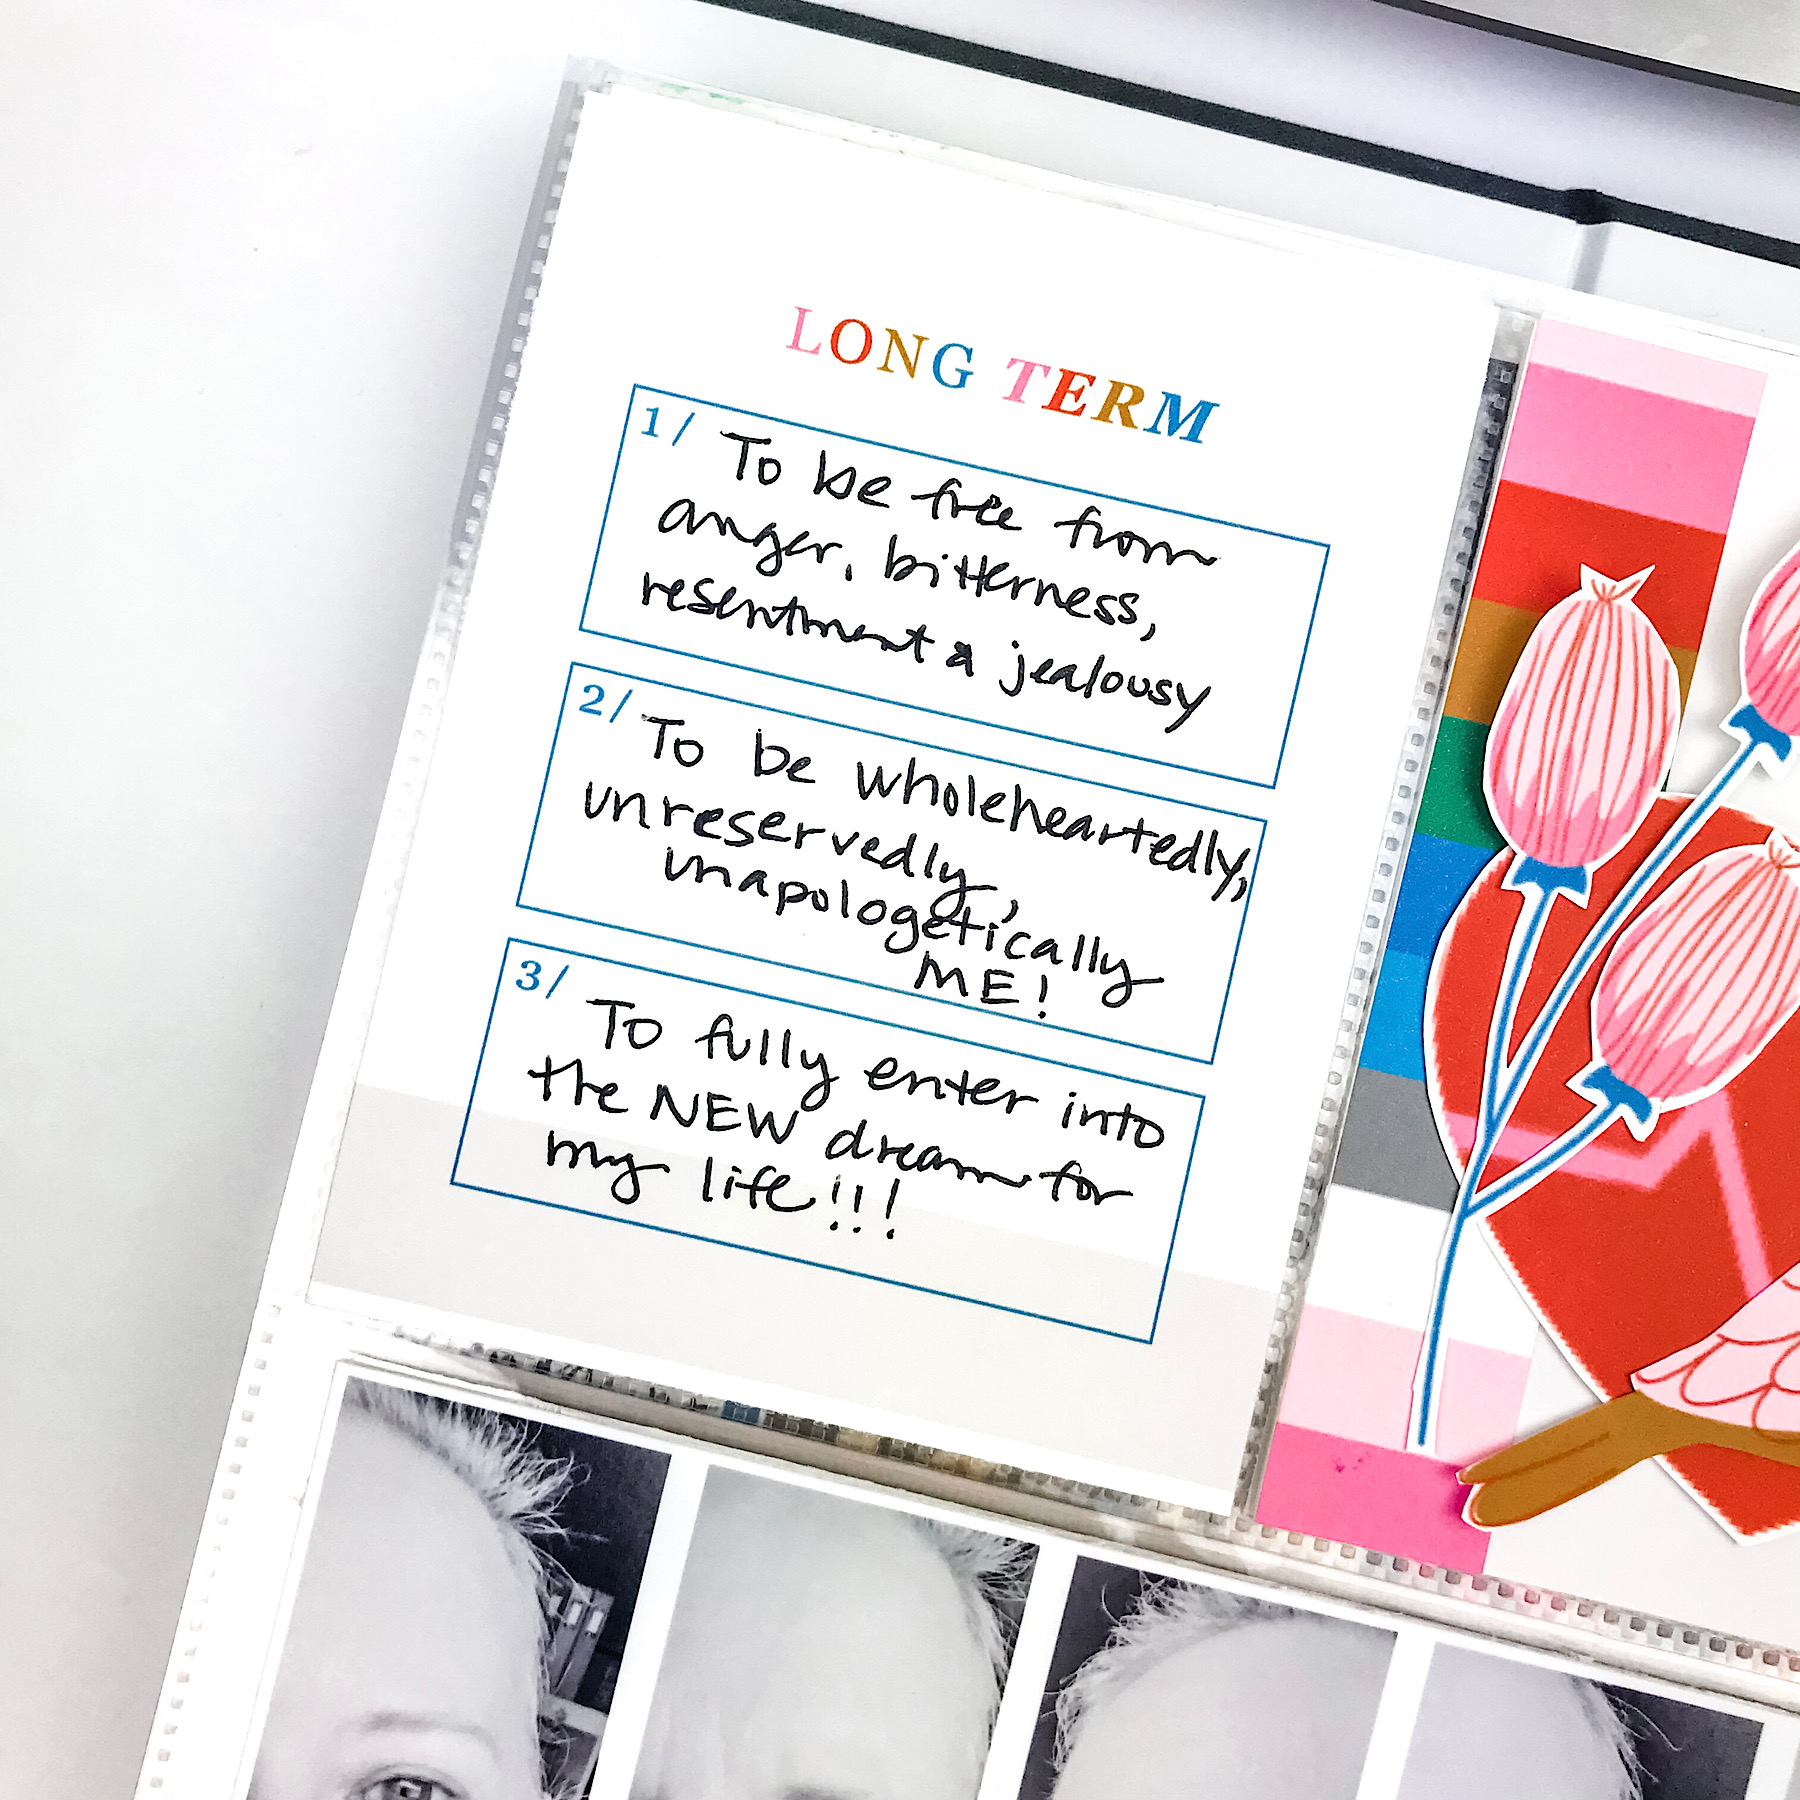 LONG TERM
1/ To be free from
anger, bitterness,
resentment & jealousy
2/ To be wholeheartedly,
unreservedly,
unapologetically
ME!
3/ To fully enter into
the NEW dream for
my life!!!